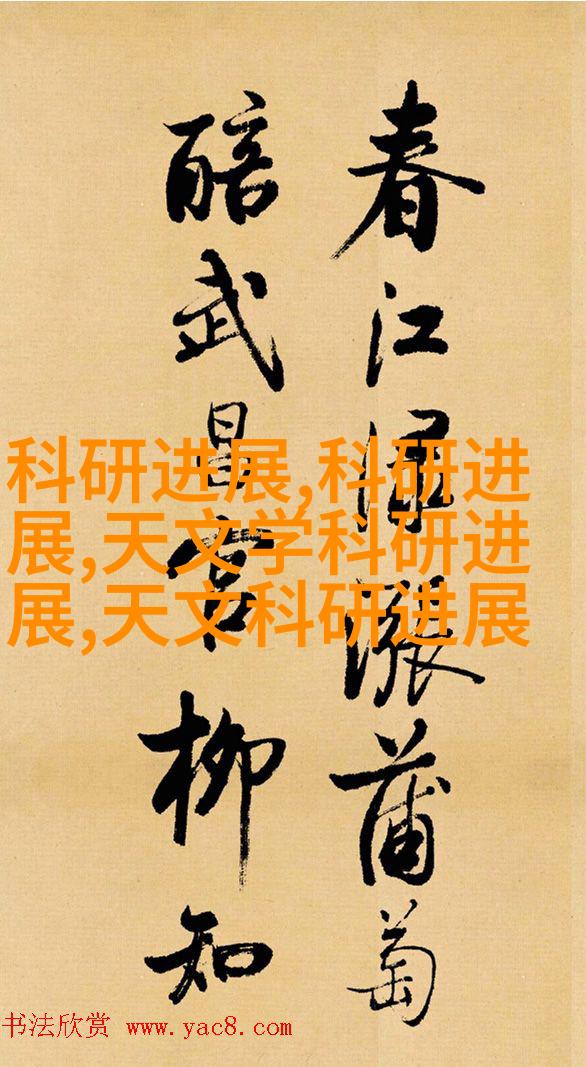 春江渌涨蒲萄
醅武昌官柳知
科研进展,科研进
展,天文学科研进
展,天文科研进展
书法欣赏 www.yac8.com